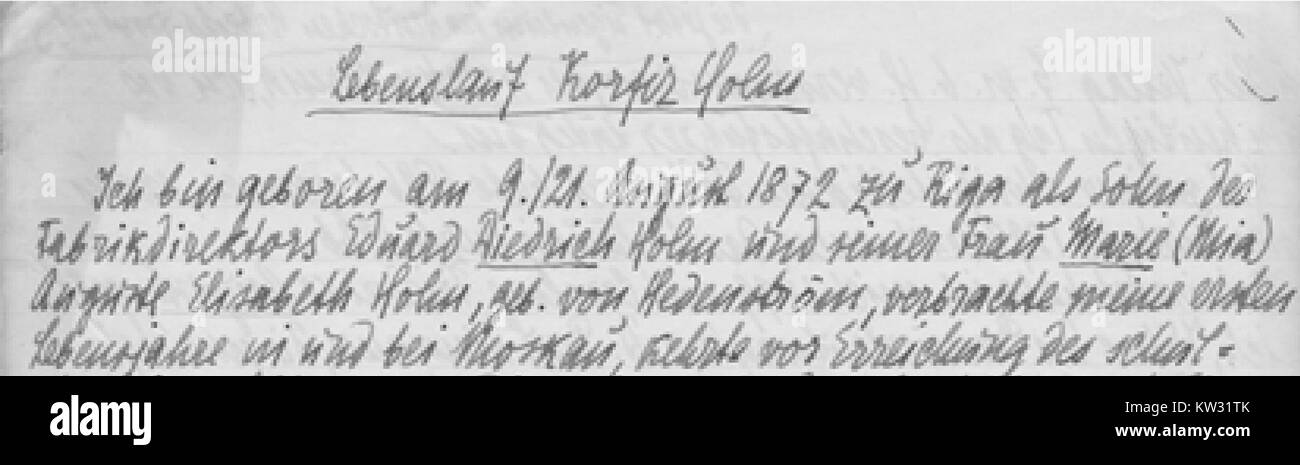 Lebenslauf Korfiz Holm
Ich bin geboren am 9./21. August 1872 zu Riga als Sohn des
Fabrikdirektors Eduard Diedrich Holm und seiner Frau Marie (Mia)
Auguste Elisabeth Holm, geb. von Hedenström, verbrachte meine ersten
Lebensjahre in und bei Moskau, kehrte vor Erreichung des schul-
alamy
alamy
alamy
alamy
Image ID: KW31TK
www.alamy.com